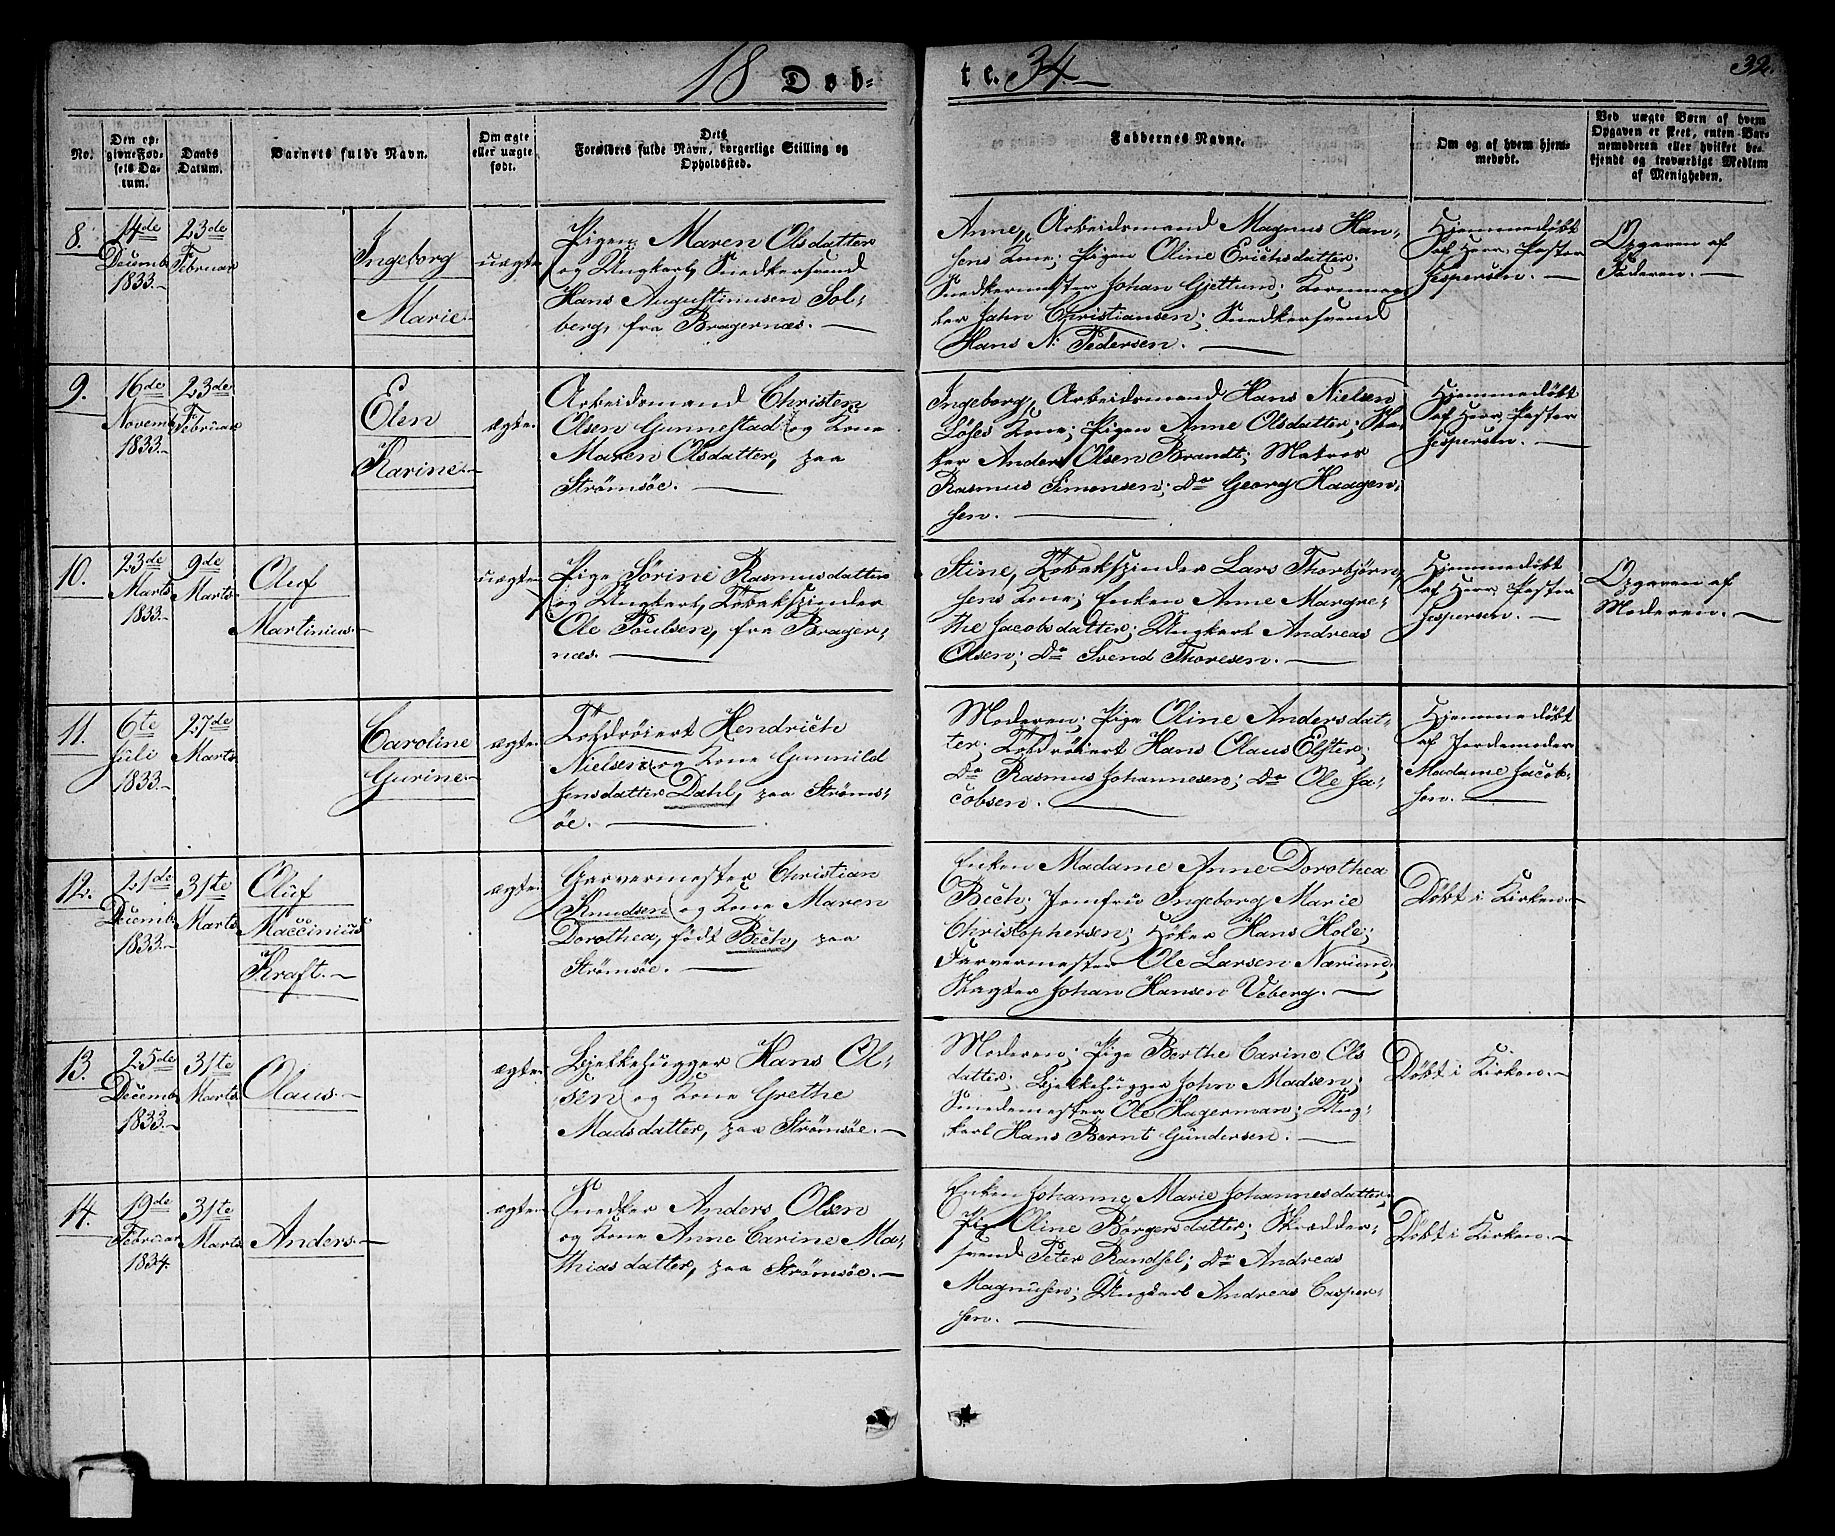 18 Døb-
te. 34.
32.
No.
Den op-
givne Fød-
sels Da-
tum.
Daabs
Datum.
Barnets fulde Navn.
Om ægte
eller uægte
født.
Dets
Forældres fulde Navn, borgerlige Stilling og
Opholdssted.
Faddernes Navne.
Om og af hvem hjem-
medøbt.
Ved uægte Børn af hvem
Opgaven er skeet, enten Bar-
nemoderen eller hvilket be-
kjendt og troværdigt Medlem
af Menigheden.
8.
14de
Decemb
1833.
23de
Februar
Ingeborg
Marie.
uægte
Pigen Maren Olsdatter
og Ungkarl, Snedkersvend
Hans Augustinusen Sol-
berg, fra Bragernæs.
Anne, Arbeidsmand Magnus Han-
sens Kone; Pigen Oline Erichsdatter;
Snedkermester Johan Gjetlund;
ter John Christiansen; Snedkersvend
Hans N. Pedersen.
Hjemmedøbt
af Herr Pastor
Jespersen.
Opgaven af
Faderen.
9.
16de
Novemb
1833.
23de
Februar
Elen
Karine
ægte
Arbeidsmand Christen
Olsen Gunnestad og Kone
Maren Olsdatter, paa
Strømsøe.
Ingeborg, Arbeidsmand Hans Nielsen
Løses Kone; Pigen Anne Olsdatter;
Anders Olsen Brandt; Matros
Rasmus Simonsen; Do Georg Haagen-
sen.
Hjemmedøbt
af Herr Pastor
Jespersen.
10.
23de
Marts
1833.
9de
Marts
Oluf
Martinius.
uægte
Pige Sørine Rasmusdatter
og Ungkarl, Tobakspinder
Ole Poulsen, fra Brager-
næs.
Stine, Tobakspinder Lars Thorbjørn-
sens Kone; Enken Anne Margre-
the Jacobsdatter; Ungkarl Andreas
Olsen; Do Svend Thoresen.
Hjemmedøbt
af Herr Pastor
Jespersen.
Opgaven af
Moderen.
11.
6te
Juli
1833.
27de
Marts
Caroline
Gurine
ægte
Toldroiert Hendrich
Nielsen og Kone Gunnild
Jensdatter Dahl, paa Strøms-
øe.
Moderen; Pige Oline Andersdat-
ter; Toldroiert Hans Olaus Elster;
Do Rasmus Johannesen; Do Ole Ja-
cobsen.
Hjemmedøbt
af Jordemoder
Madame Jacob-
sen.
12.
21de
Decemb
1833.
31te
Marts
Oluf
Maccinius
Kraft.
ægte
Garvermester Christian
Knudsen og Kone Maren
Dorothea, født Bech, paa
Strømsøe.
Enken Madame Anne Dorothea
Bech; Jomfru Ingeborg Marie
Christophersen; Høker Hans Hole;
Farvermester Ole Larsen Nærund;
Slagter Johan Hansen Veberg.
Døbt i Kirken.
13.
25de
Decemb
1833.
31te
Marts
Olaus.
ægte
Bjelkehugger Hans Ol-
sen og Kone Grethe
Madsdatter, paa Strømsøe.
Moderen; Pige Berthe Carine Ols
datter; Bjelkehugger John Madsen;
Smedemester Ole Hagerman; Ung-
karl Hans Bernt Gundersen.
Døbt i Kirken.
14.
19de
Februar
1834.
31te
Marts
Anders
ægte
Snedker Anders Olsen
og Kone Anne Carine Ma-
thiasdatter, paa Strømsøe.
Enken Johanne Marie Johannesdatter;
Pig Oline Børgersdatter; Skrædder-
svend Peter Randsel; Do Andreas
Magnusen; Ungkarl Andreas Casper-
sen.
Døbt i Kirken.